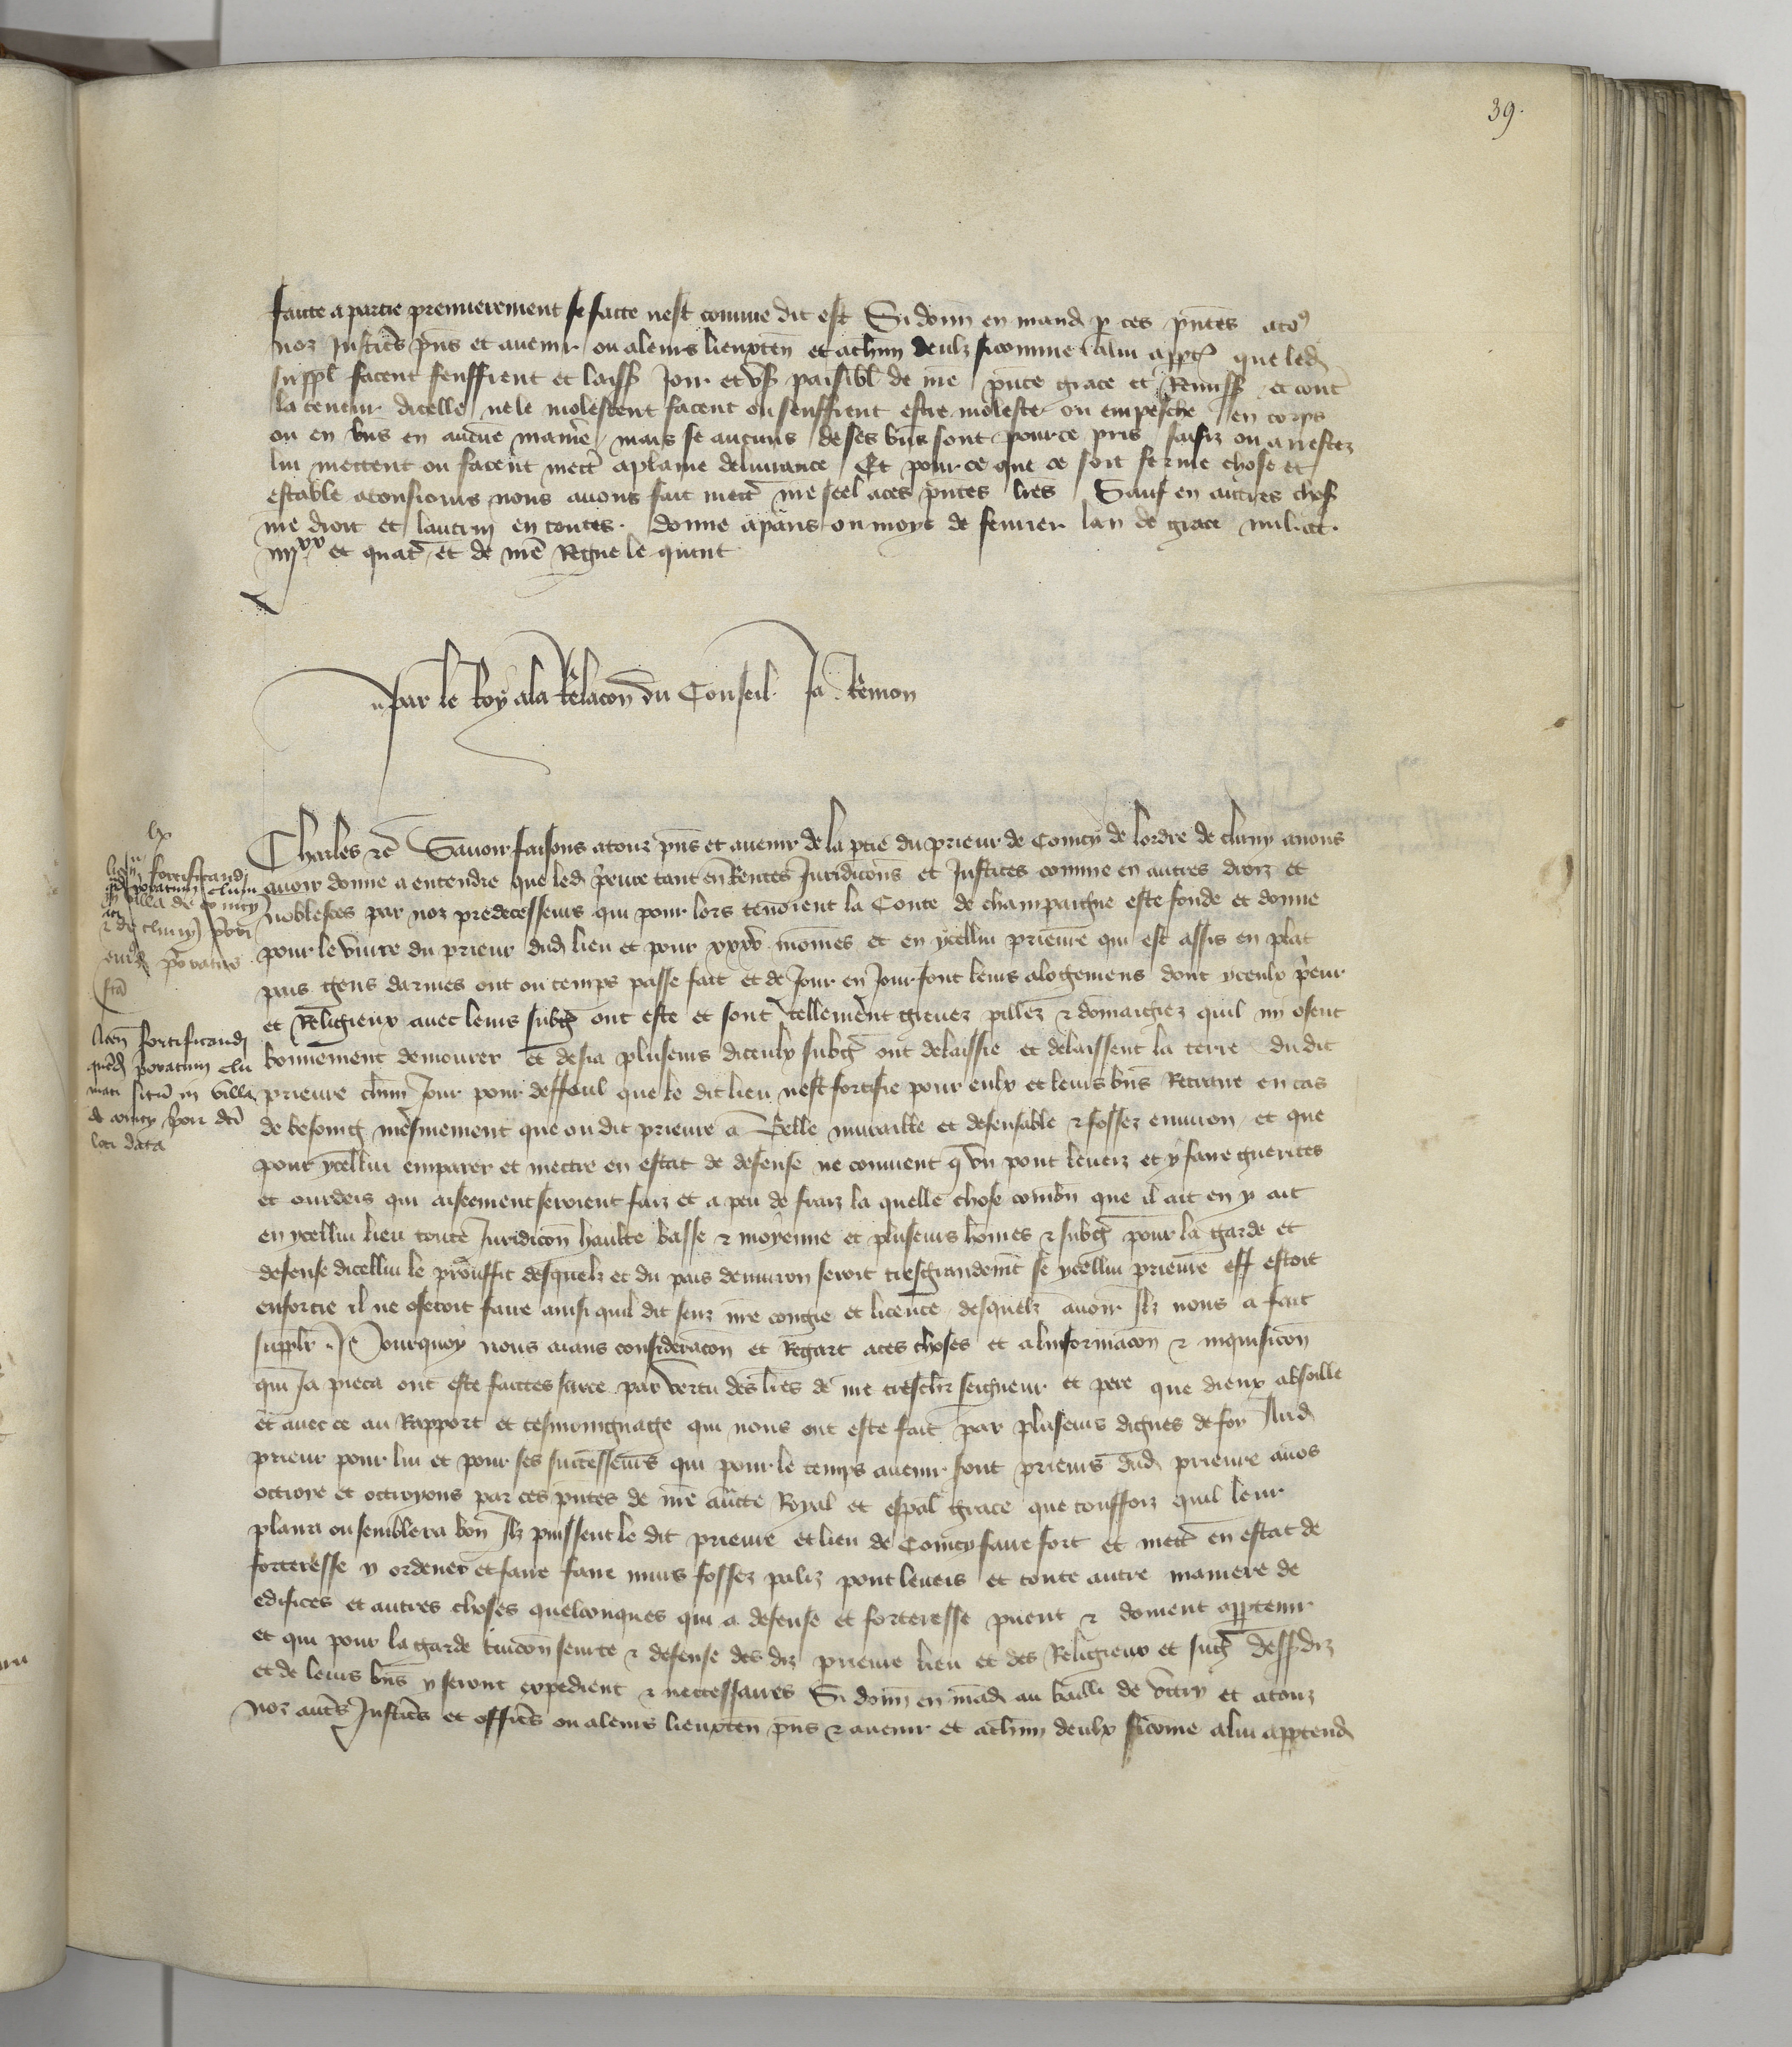 39.
faicte a partie premierement se faicte nest comme dit est Si donn en mand p ces pntes a toꝯ
noz justices pns et avenir ou a leurs lieuxten et a chun deulz si comme a lui appt que led
suppl facent seuffrent et laiss joir et us paisibl de nre pnte grace et Remiss et contre
la teneur dicelle ne le molestent facent ou seuffrent estre moleste ou empesche en corps
ou en bns en aucune maniere mais se aucuns de ses bns sont pour ce pris saisiz ou arrestez
lui mettent ou facent mett a plaine delivrance Et pour ce que ce soit ferme chose et
estable a tousjours nous avons fait mett nre seel a ces pntes lres Sauf en autres chos
nre droit et lautruy en toutes. Donne a paris ou moys de fevrier lan de grace mil ccc.
iiij xx et quatr et de nre Regne le quint
Par le Roy a la Relacon du Conseil Ja. Remon
lx
Charles etc Savoir faisons a touz pns et avenir de la ptie du prieur de Coincy de lordre de cluny avons
avoir donne a entendre que led prieure tant en Rentes Juridicons et Justices comme en autres droiz et
noblesces par noz predecesseurs qui pour lors tenoient la Conte de champaigne este fonde et donne
pour le vivre du prieur dud lieu et pour xxxv moines et en ycellui prieure qui est assis en plat
pais gens darmes ont ou temps passe fait et de jour en jour font leurs alogemens dont yceulx prieur
et Religieux avec leurs subg ont este et sont tellement grevez pillez et domaigiez quil ni osent
bonnement demourer et desia pluseurs diceulx subg ont delaissie et delaissent la terre du dit
prieure chun jour pour deffault que le dit lieu nest fortifie pour eulx et leurs bns Retraire en cas
de besoing mesmement que ou dit prieure a belle muraille et defensable et fossez environ et que
pour ycellui emparer et mettre en estat de defense ne convient q un pont leveiz et y faire guerites
et ourdeis qui aiseement seroient faiz et a peu de fraiz la quelle chose combn que il ait en y ait
en ycellui lieu toute juridicon haulte basse et moyenne et pluseurs homes et subg pour la garde et
defense dicellui le prouffit desquelz et du pais denviron seroit tresgrandement se ycellui prieure est estoit
enforcie il ne oseroit faire ainsi quil dit senz nre congie et licence desquelz avoir Ilz nous a fait
supplr Pourquoy nous aians consideracon et Regart a ces choses et a linformacon et inquisicon
qui ja pieca ont este faictes sur ce par vertu des lres de nre treschr seigneur et pere que dieux absoille
et avec ce au Rapport et tesmoingnage qui nous ont este fait par pluseurs dignes de foy Aud
prieur pour lui et pour ses successeurs qui pour le temps avenir sont prieurs dud prieure avos
octroye et octroyons par ces pntes de nre aucte Royal et espal grace que toutffoiz quil leur
plaira ou semblera bon Ilz puissent le dit prieure et lieu de Coincy faire fort et mett en estat de
forteresse y ordener et faire faire murs fossez paliz pont leveis et toute autre maniere de
edifices et autres choses quelconques qui a defense et forteresse puent et doivent appartenir
et qui pour la garde tuicon seurte et defense des diz prieure lieu et des Religieux et subg dessdiz
et de leurs bns y seront expedient et neccessaires Si donn en mand au bailli de vitry et a touz
noz autres Justices et offices ou a leurs lieuxten pns et avenir et a chun deulx si come a lui apptend
lia fortificand
qd poratum clun
in villa de coincy
et de cluniy priori
eiusd poratus
fta
licen fortificandi
quedd prioratum clu
niaci situ in villa
de coincy priori dci
loci data